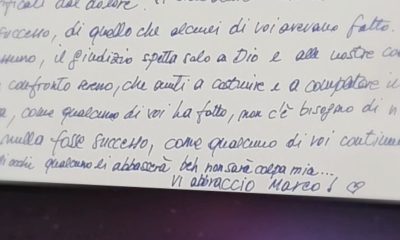 ificati dal dolore.
successo, di quello che alcuni di voi avevano fatto.
il giudizio spetta solo a Dio e alle nostre co
confronto sereno, che aiuti a costruire e a completare i
, come qualcuno di voi ha fatto, non c'è bisogno di
nulla fosse successo, come qualcuno di voi continu
occhi qualcuno li abbasserà beh non sarà colpa mia...
Vi abbraccio Marco! ♡